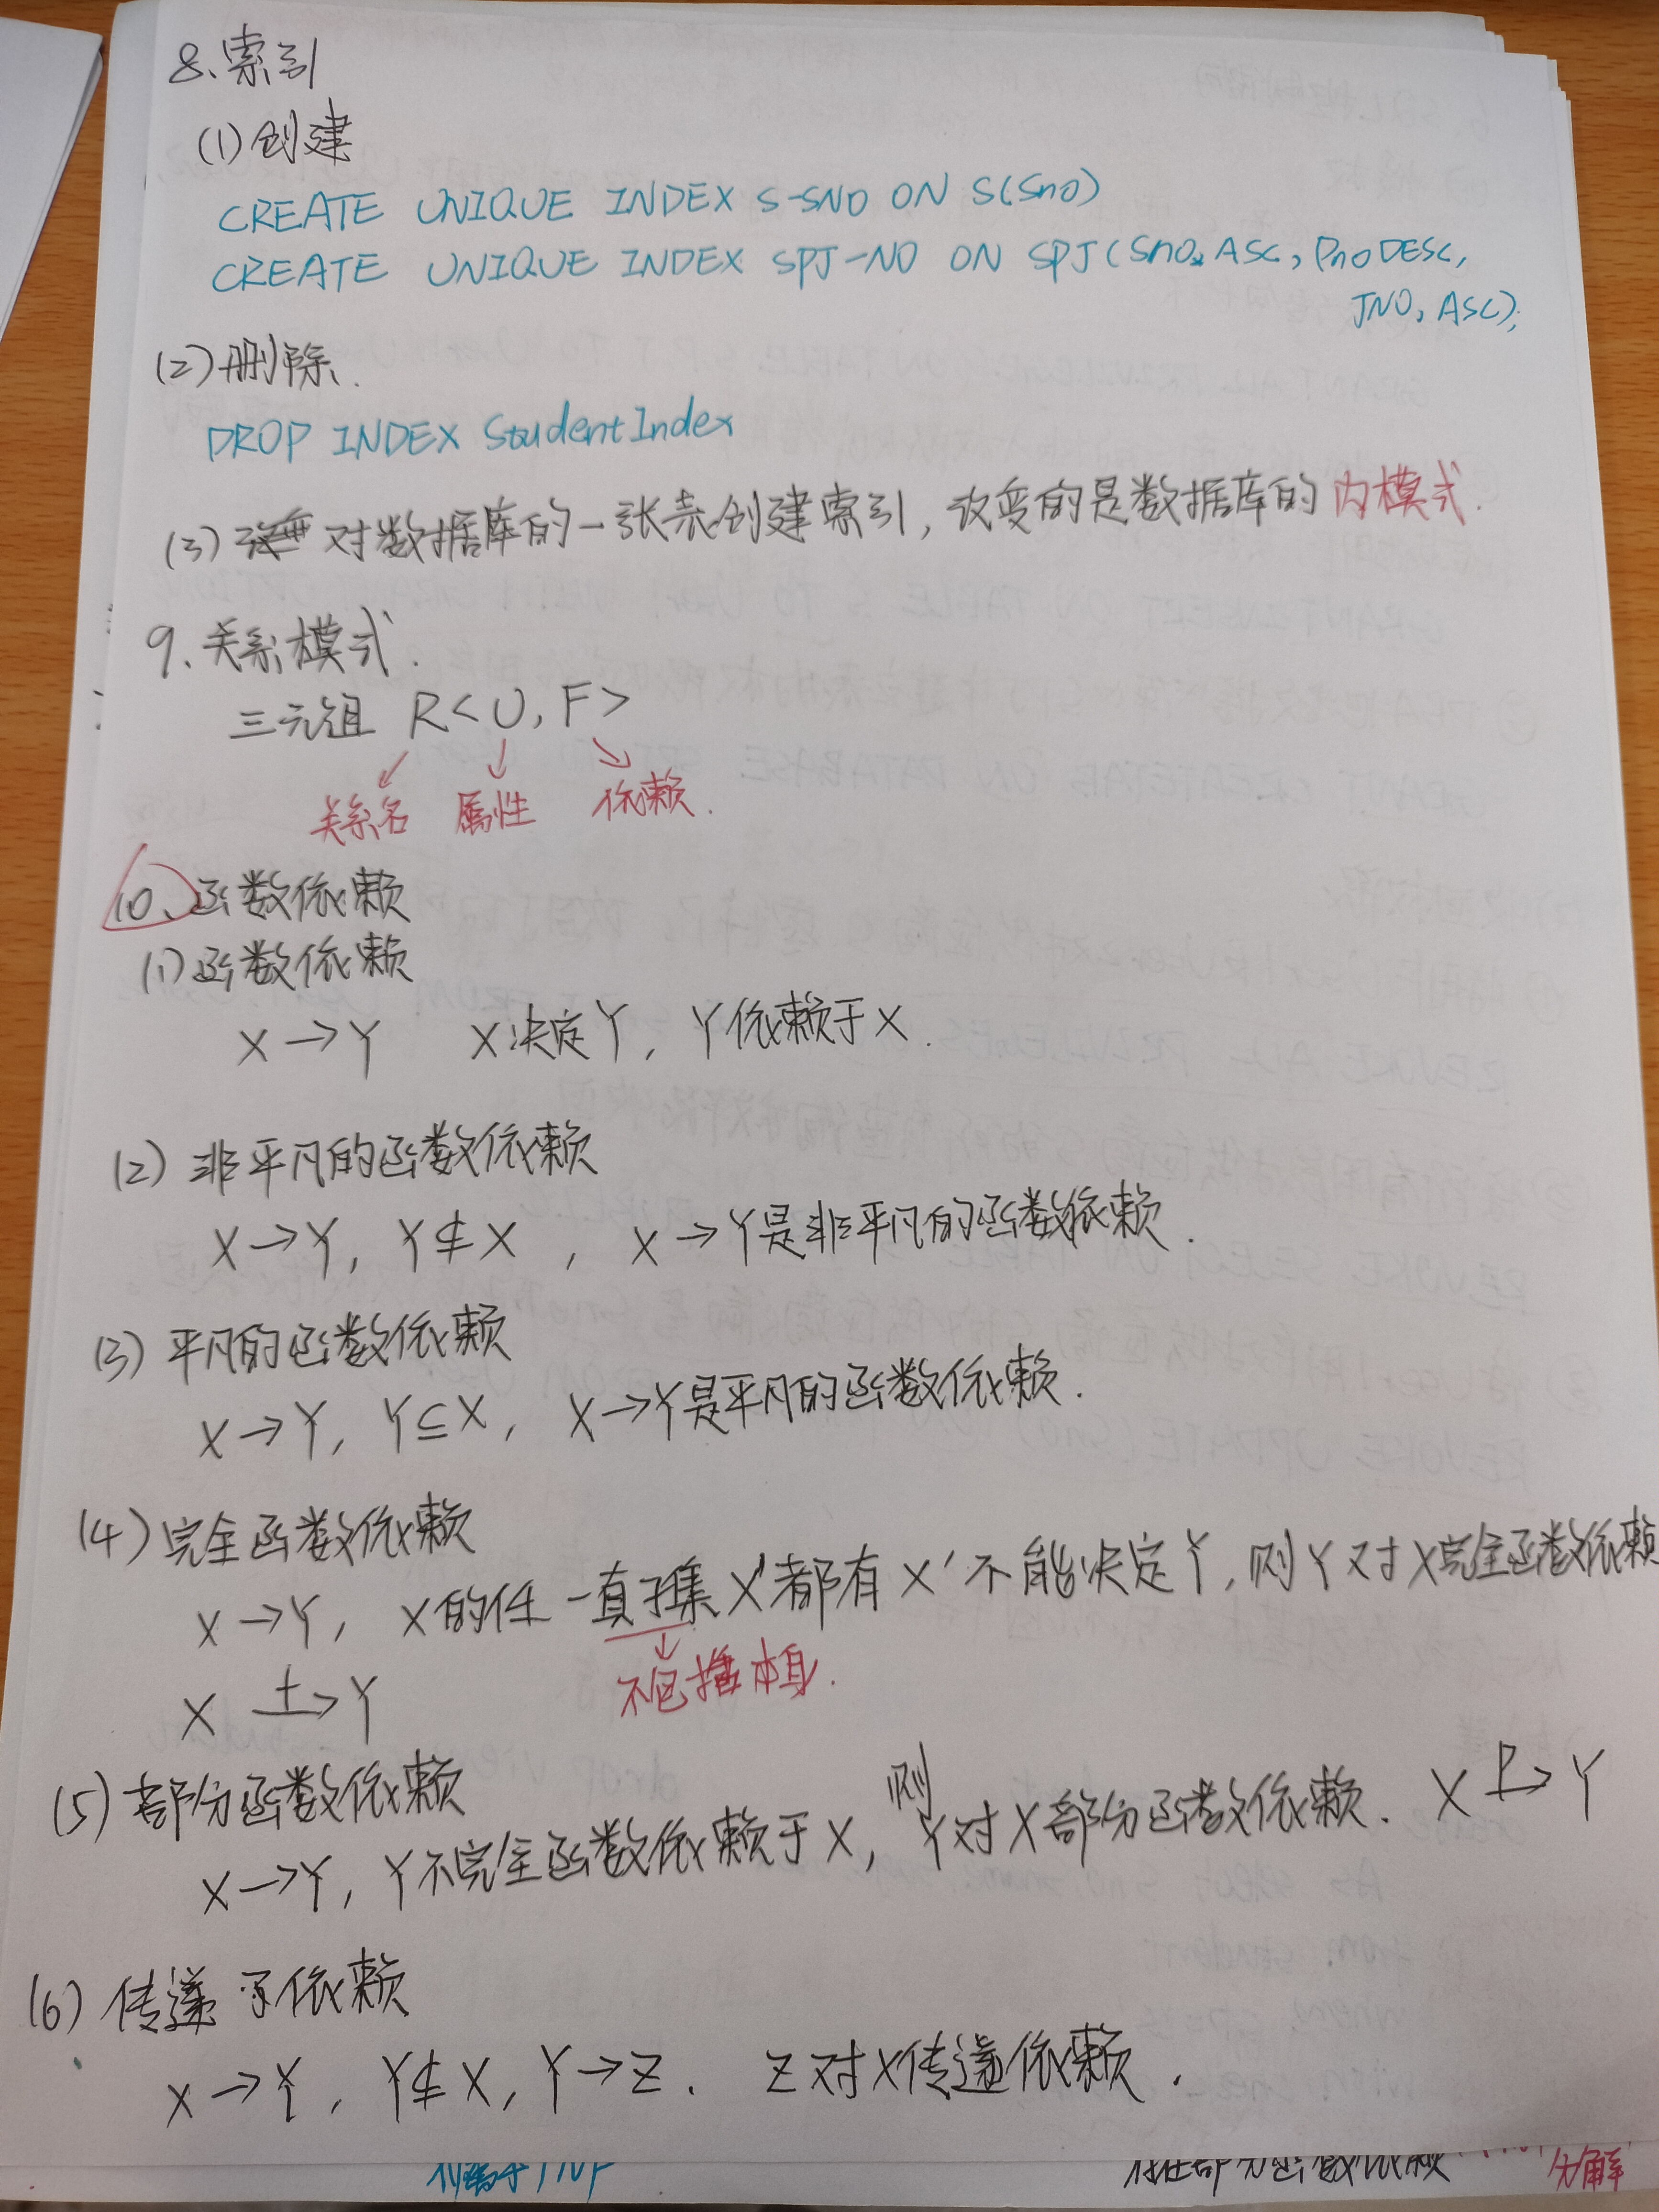 8、索引
(1)创建
CREATE UNIQUE INDEX S-SNO ON S(Sno)
CREATE UNIQUE INDEX SPJ-NO ON SPJ(Sno, ASC, Pno DESC,
JNO, ASC);
(2)删除.
DROP INDEX StudentIndex
(3) 对数据库的一张表创建索引, 改变的是数据库的内模式.
9、关系模式.
三元组 R<U, F>
关系名 属性 依赖.
10、函数依赖
(1)函数依赖
X→Y X决定Y, Y依赖于X.
(2) 非平凡的函数依赖
X→Y, Y⊈X , X→Y是非平凡的函数依赖.
(3) 平凡的函数依赖
X→Y, Y⊆X, X→Y是平凡的函数依赖.
(4) 完全函数依赖
X→Y, X的任一真子集X'都有X'不能决定Y, 则Y对X完全函数依赖
不包括本身.
X F→ Y
(5) 部分函数依赖
X→Y, Y不完全函数依赖于X, 则Y对X部分函数依赖. X P→ Y
(6) 传递 依赖
X→Y, Y⊈X, Y→Z. Z对X传递依赖.
存在部分函数依赖
分解